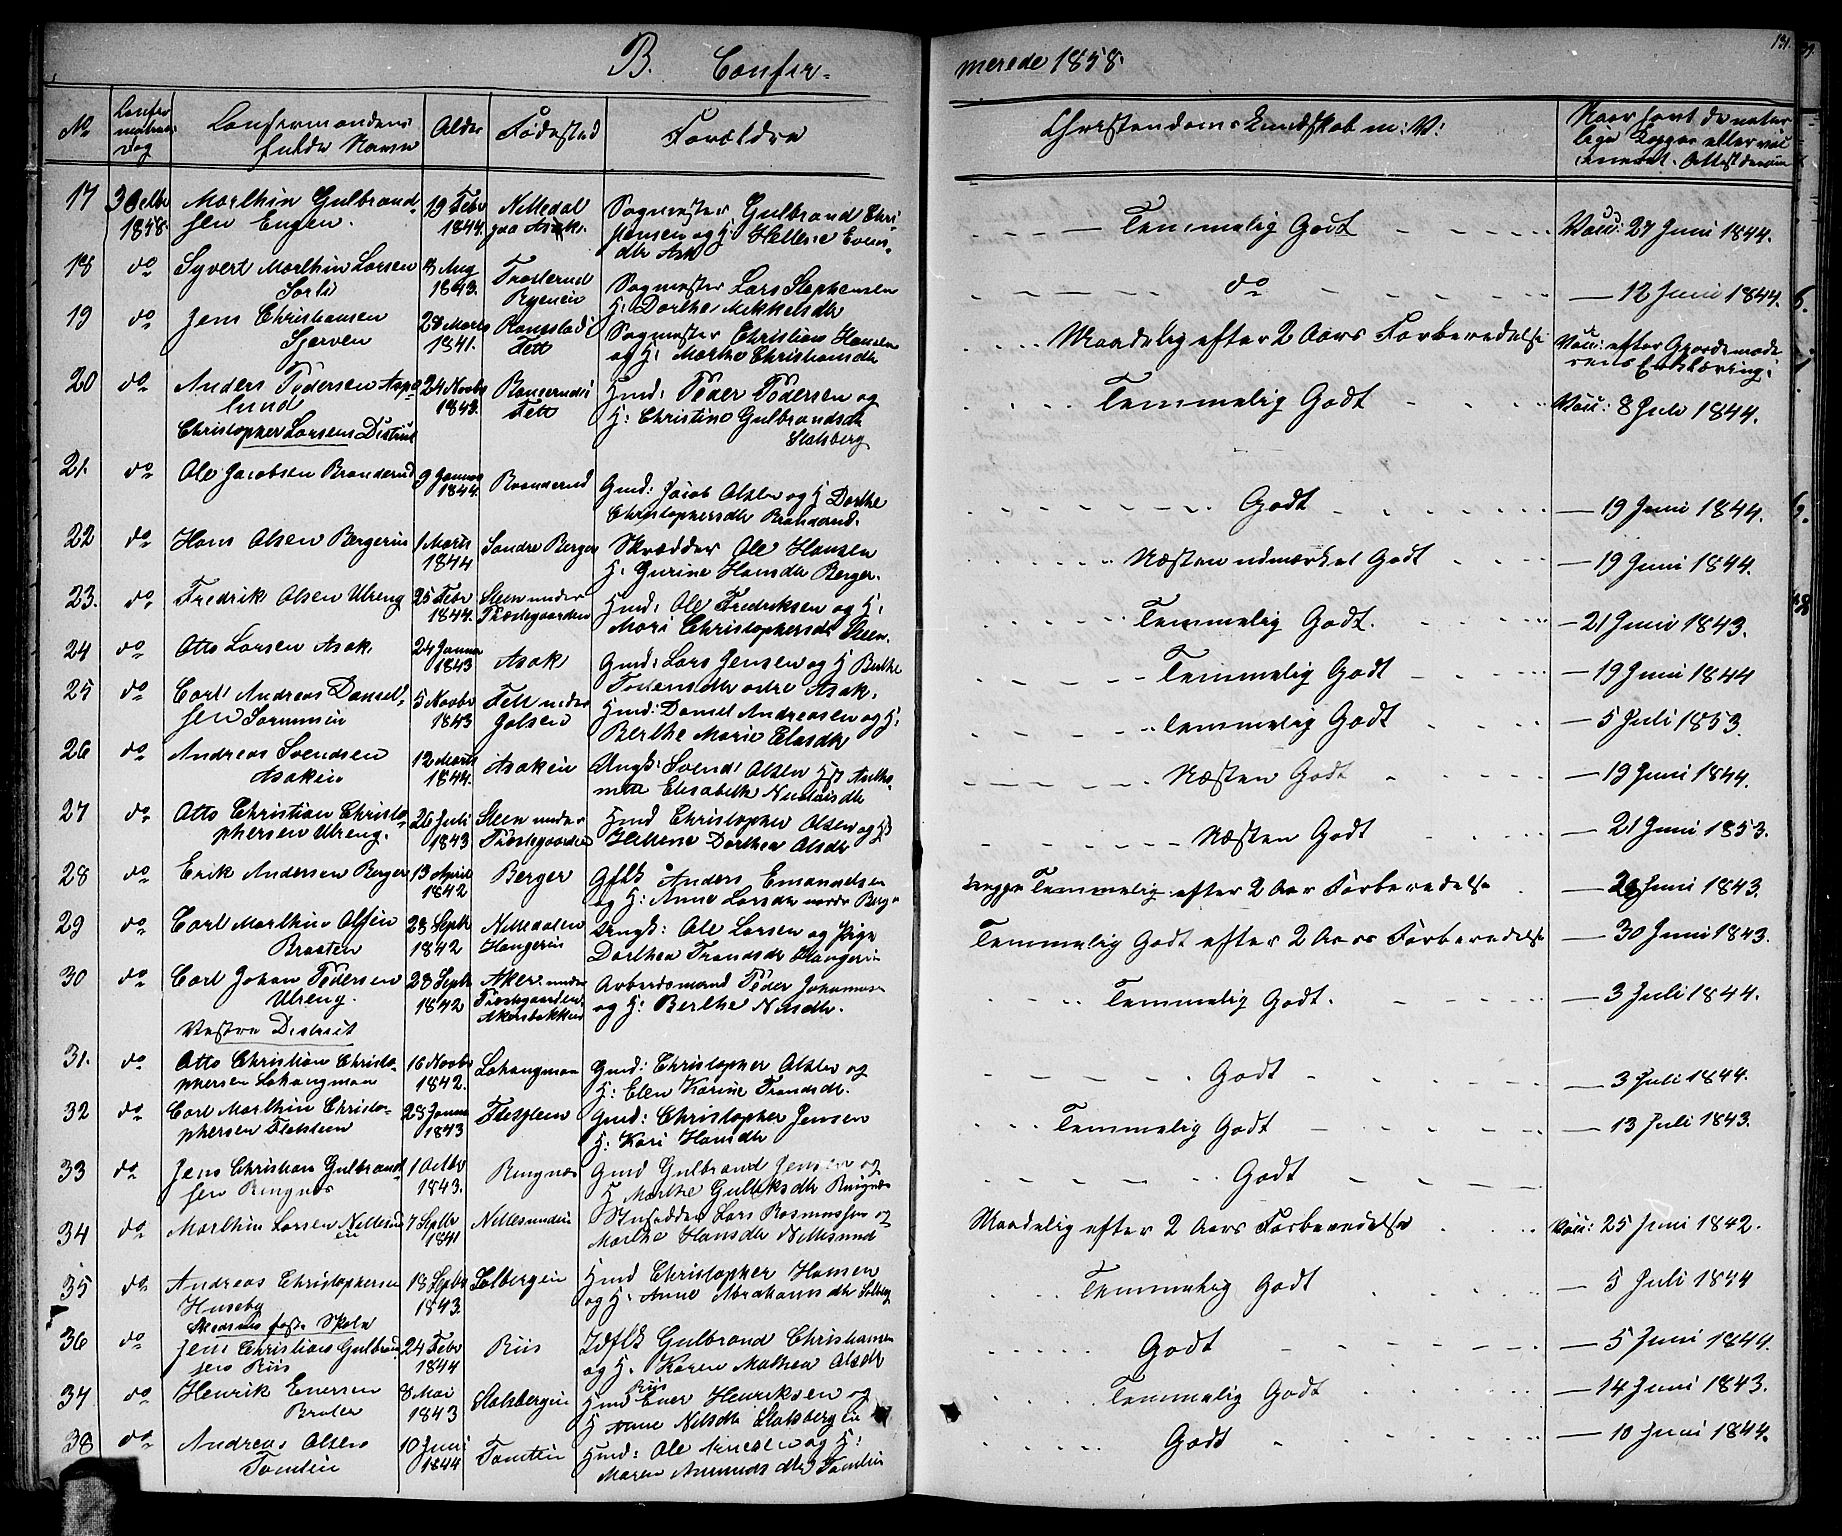 B. Confir-
merede 1858.
131.
No
Confirmations Dag
Confirmandens fulde Navn
Alder
Fødested
Forældre
Christendoms Kundskab m: V:
Naar havt de naturlige Kopper eller vaccineret. Attest derom
17 3 Octbr 1858. Marthin Gulbrandsen Engen. 19 Febr 1844. Nittedal paa Asak. Sagmester Gulbrand Christensen og H: Hellene Evensdtr Ask Temmelig Godt Vacc: 27 Juni 1844.
18 do Syvert Marthin Larsen Sorli 8 Aug 1843. Frosterud Ryeneie Sagmester Lars Stephensen H: Dorthe Mikkelsdtr do — 12 Juni 1844.
19 do Jens Christiansen Tjerven 28 Marts 1841. Ramstadeie Fett Sagmester Christian Hansen og H: Marthe Christiansdtr Maadelig efter 2 Aars Forberedelse Vacc: efter Gjordemoderens Erklæring.
20 do Anders Pedersen Asplund 24 Novbr 1843. Fett Hmd: Peder Pedersen og H: Christine Gulbrandsdtr Stalsberg Temmelig Godt Vacc: 8 Juli 1844.
Christopher Larsens District
21. do Ole Jacobsen Branderud 9 Januar 1844. Branderud Gmd: Jacob Olsen og H Dorthe Christophersdtr Branderud. Godt — 19 Juni 1844.
22 do Hans Olsen Bergereie 1 Marts 1844 Søndre Berger Skrædder Ole Hansen H: Gurine Hansdtr Berger. Næsten udmærket Godt — 19 Juni 1844.
23. do Fredrik Olsen Ulreng 25 Febr 1844. Steen under Præstegaarden Hmd: Ole Fredriksen og H: Mari Christophersdtr Steen. Temmelig Godt. — 21 Juni 1843.
24 do Otto Larsen Asak 24 Januar 1843 Asak Gmd: Lars Jensen og H Berthe Pedersdtr østre Asak. Temmelig Godt — 19 Juni 1844
25 do Carl Andreas Danielsen Sørumseie 5 Novbr 1843 Fett under Jølsen Hmd: Daniel Andreasen og H: Berthe Marie Elasdtr Temmelig Godt — 5 Juli 1853.
26 do Andreas Svendsen Asakeie 12 Marts 1844. Asakeie Ungk: Svend Olsen Elisabeth Nicolaisdtr Næsten Godt — 19 Juni 1844.
27 do Otto Christian Christophersen Ulreng. 26 Juli 1843 Steen under Præstegaarden Hmd Christopher Olsen og H Hellene Dorthea Olsdtr Næsten Godt — 21 Juni 1853.
28 do Erik Andersen Berger 13 April 1842 Berger Anders Emanuelsen og H: Anne Larsdtr nordre Berg Temmelig efter 2 Aar Forberedelse — Juni 1843.
29 do Carl Marthin Olsen Braaten 28 Septb 1842 Nittedalen Haugerin Ungk: Ole Larsen og Pige Dorthea Trondsdtr Haugerin Temmelig Godt efter 2 Aars Forberedelse — 30 Juni 1843.
30 do Carl Johan Pedersen Ulreng. 28 Septb 1842 Aker under Præstegaarden Akersbakken Arbeidsmand Peder Johannesen og H: Berthe Nilsdtr. Temmelig Godt. — 3 Juli 1844.
Vestre District
31. do Otto Christian Christophersen Løkangman 16 Novbr 1842. Løkangman Gmd: Christopher Olsen og H: Elen Karine Trondsdtr. Godt — 3 Juli 1844.
32 do Carl Marthin Christophersen Flesteen 28 Januar 1843 Flesteen Gmd: Christopher Jensen H: Kari Hansdtr Temmelig Godt — 13 Juli 1843.
33 do Jens Christian Gulbrandsen Ringnes 1 Octbr 1843. Ringnes Gmd Gulbrand Jensen og H Marthe Gulliksdtr Ringnes Godt
34 do Marthin Larsen Nittesundeie 7 Septbr 1841 Nittesundeie Lars Rasmussen og Marthe Hansdtr Nittesund Maadelig efter 2 Aars Forberedelse Vacc: 25 Juni 1842.
35 do Andreas Christophersen Huseby 18 Septbr 1843. Solbergeie Hmd Christopher Hansen og H: Anne Abrahamsdtr Solberg Temmelig Godt — 5 Juli 1844
Skedsmo faste Skole
36 do Jens Christian Gulbrandsen Riis 24 Febr 1844 Riis Gulbrand Christiansen og H. Karen Mathea Olsdtr Riis Godt — 5 Juni 1844.
37 do Henrik Enersen Braler 8 Mai 1843 Stalsbergeie Hmd Ener Henriksen og H Anne Nilsdtr Stalsbergeie Temmelig Godt — 14 Juni 1843.
38 do Andreas Olsen Tomteie 10 Juni 1844 Tomteie Hmd: Ole Arnesen og H: Maren Amundsdtr Tomteie Godt — 10 Juni 1844.